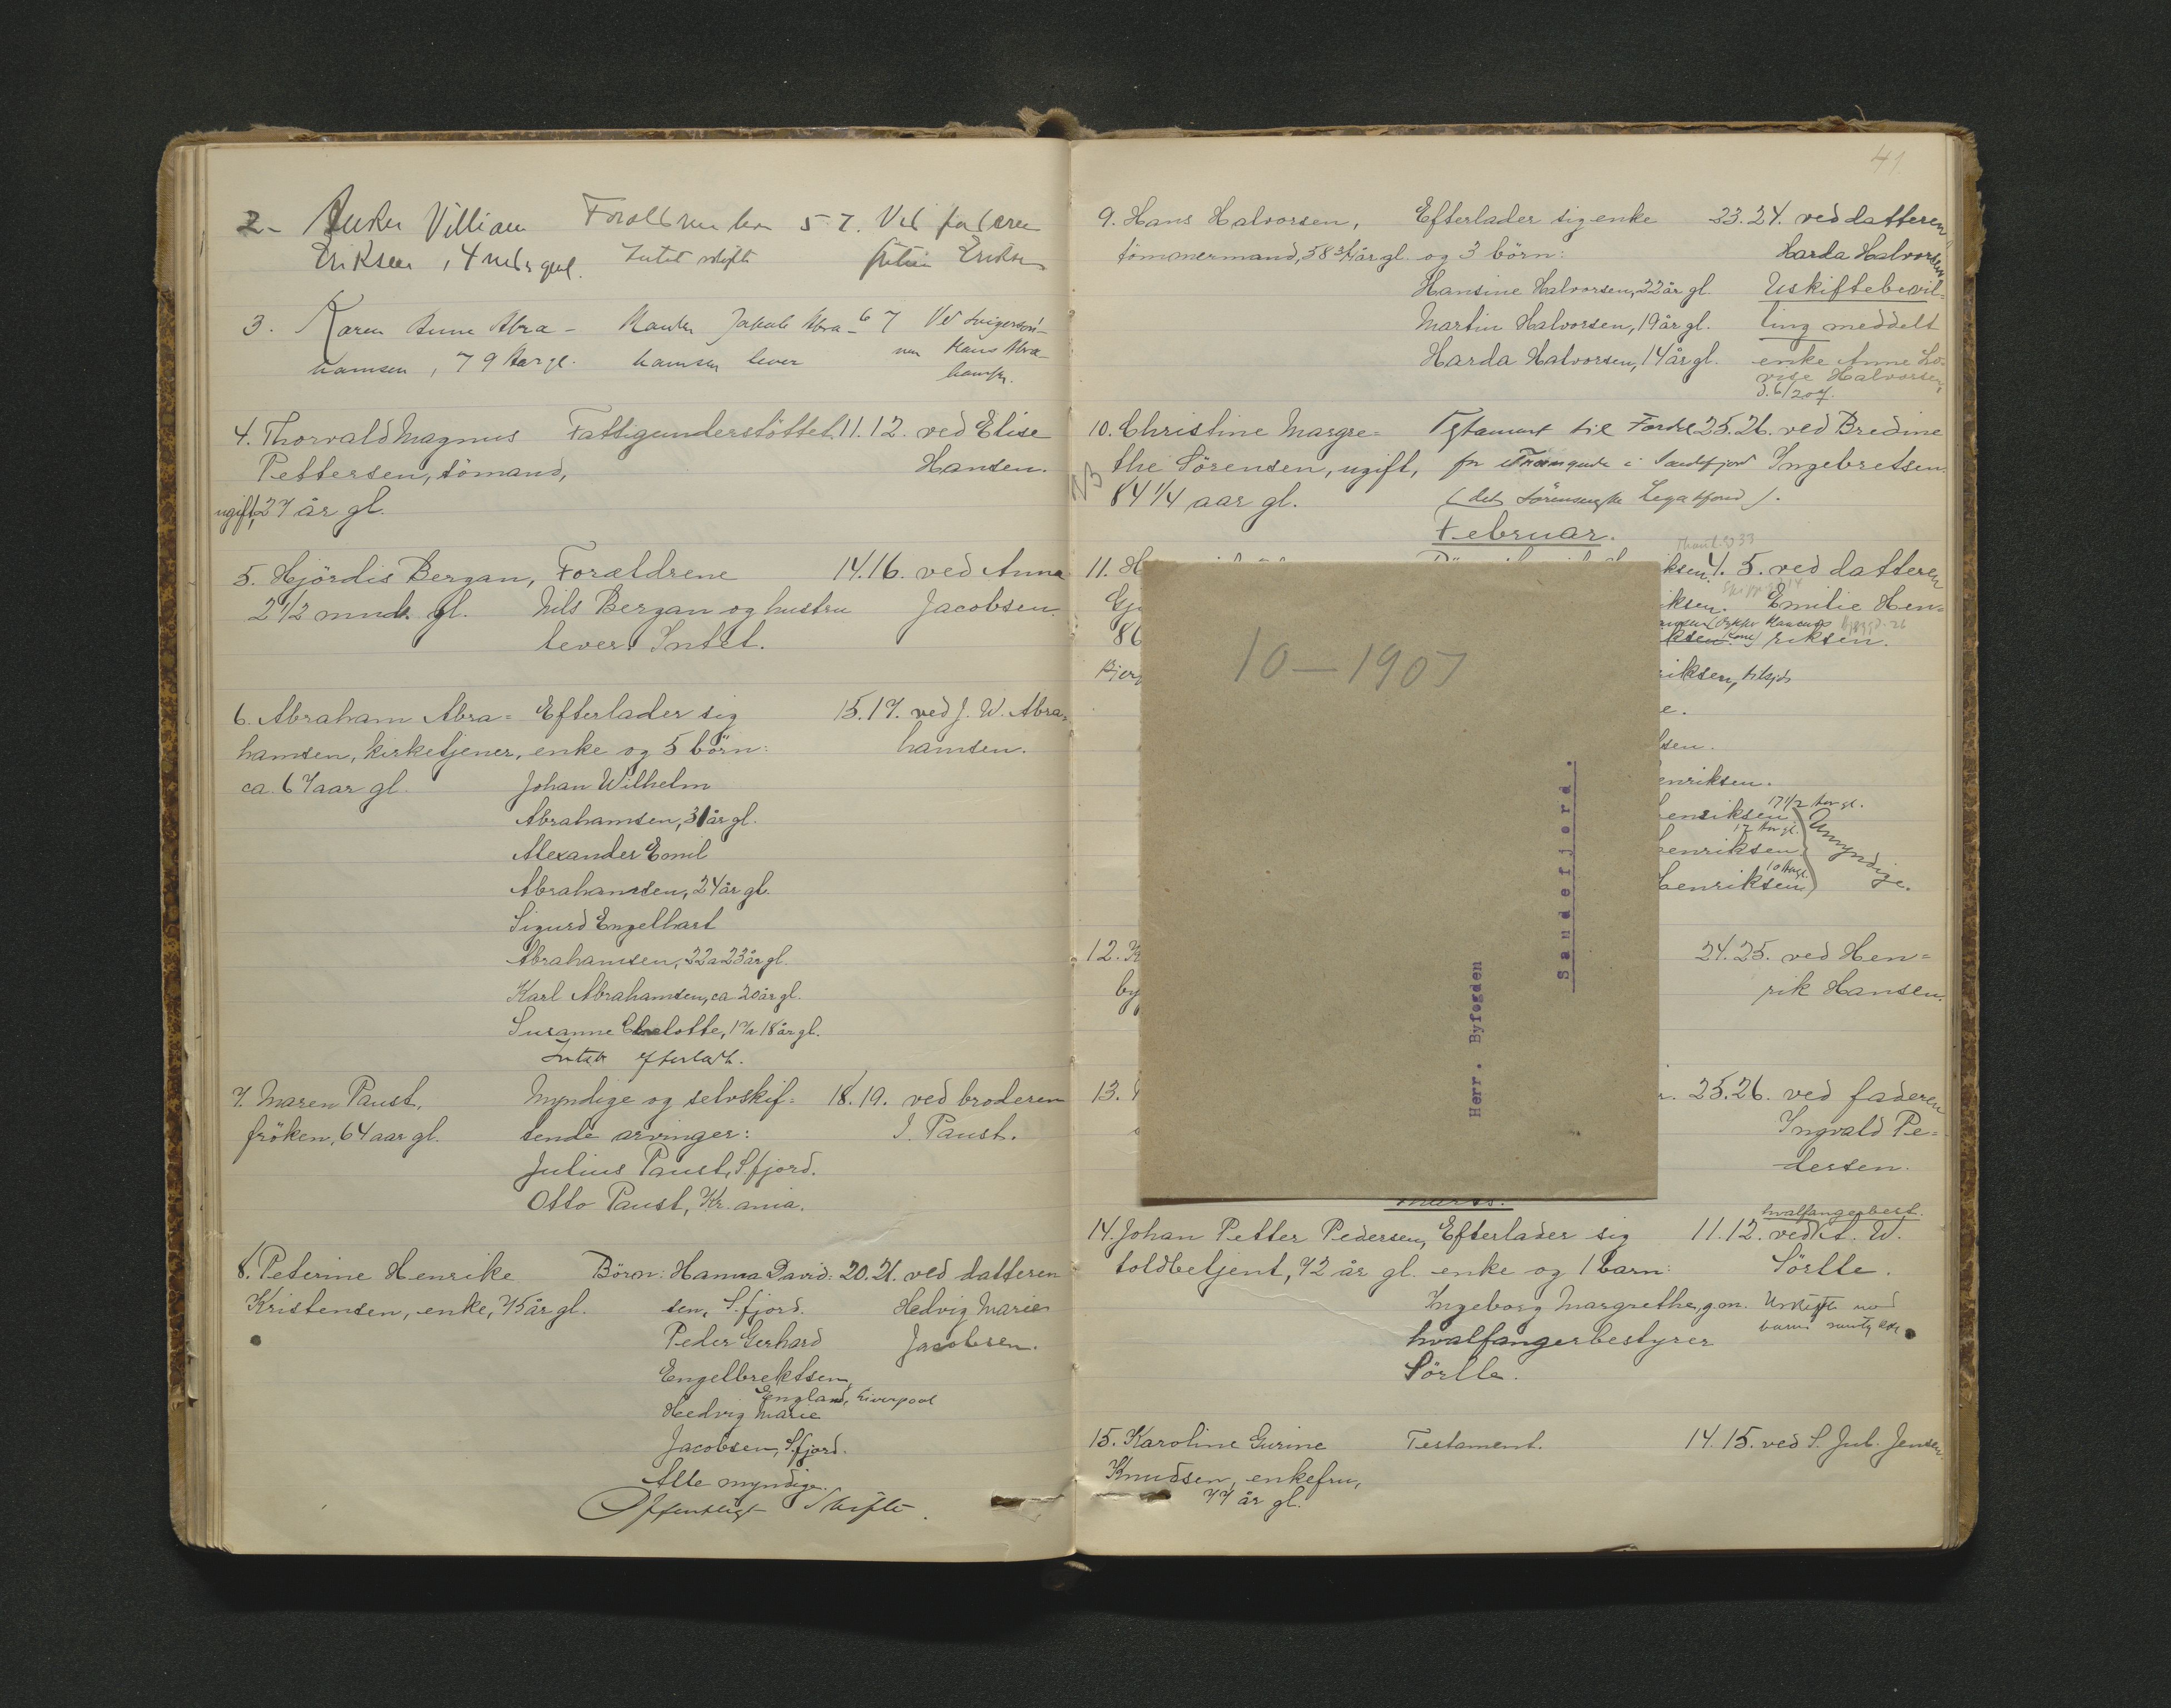 2- Villiam Forældrene lever 5 7. Ved faderen
Eriksen, 4 mdr gml. Intet skifte Eriksen
3. Karen Anne Abra- Jakob Abra- 6 7 Ved svigersøn-
hamsen, 79 Aar gl. hamsen lever nen Hans Abra-
hamsen.
4. Thorvald Magnus Fattigunderstöttet. 11.12. ved Elise
Pettersen, sömand, Hansen.
ugift, 27 år gl.
5. Hjördis Bergan, Forældrene 14.16. ved Anna
2 1/2 mndr. gl. Nils Bergan og hustru Jacobsen.
lever. Intet.
6. Abraham Abra= Efterlader sig 15.17. ved J. W. Abra=
hamsen, kirketjener, enke og 5 börn: hamsen.
ca. 67 aar gl. Johan Wilhelm
Abrahamsen, 31 år gl.
Alexander Emil
Abrahamsen, 24 år gl.
Sigurd Engelhart
Abrahamsen, 22 a 23 år gl.
Karl Abrahamsen, ca 20 år gl.
Susanne Charlotte, 17 a 18 år gl.
Intet efterladt.
7. Maren Paust, Myndige og selvskif= 18.19. ved broderen
fröken, 64 aar gl. tende arvinger: J. Paust.
Julius Paust, S.fjord.
Otto Paust, Kr.ania.
8. Peterine Henrike Börn: Hanna David= 20.21. ved datteren
Kristensen, enke, 75 år gl. sen, S.fjord. Hedvig Marie
Peder Gerhard Jacobsen.
Engelbrektsen,
England, Liverpool
Hedvig Marie
Jacobsen, S.fjord.
Alle myndige.
Offentligt Skifte.
41.
9. Hans Halvorsen, Efterlader sig enke 23.24. ved datteren
tömmermand, 58 3/4 år gl. og 3 börn: Harda Halvorsen
Hansine Halvorsen, 22 år gl. Uskiftebevil=
Martin Halvorsen, 19 år gl. ling meddelt
Harda Halvorsen, 14 år gl. enke Anne Lo=
vise Halvorsen,
d. 6/2 07.
10. Christine Margre= Testament til Fordel 25.26. ved Bredine
NB the Sörensen, ugift, for i Sandefjord Ingebretsen.
84 1/4 aar gl. (det Sörensenske Legatfond).
Februar.
11. H ksen 4. 5. ved datteren
Gj iksen. Emilie Hen=
86 ksen riksen.
Bjer riksen, tilsjös
e.
sen.
enriksen.
17 1/2 Aar gl.
enriksen
17 Aar gl.
enriksen Umyndige.
10 Aar gl.
Henriksen
10-1907
Herr. Byfogden
Sandefjord.
12. K 24.25. ved Hen=
by rik Hansen.
13. 25.26. ved faderen
Ingvald Pe=
dersen.
Marts.
hvalfangerbest.
14. Johan Petter Pedersen, Efterlader sig 11.12. ved W.
toldbetjent, 42 år gl. enke og 1 barn: Sörlle.
Ingeborg Margrethe, gm. Uskifte med
hvalfangerbestyrer barns samtykke
Sörlle.
15. Karoline Gurine Testament. 14.15. ved S. Jul. Jensen
Knudsen, enkefru,
77 år gl.